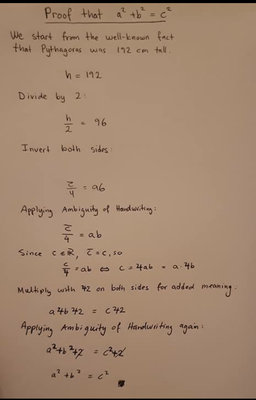 Proof that a² + b² = c²
We start from the well-known fact
that Pythagoras was 192 cm tall.
h = 192
Divide by 2:
h/2 = 96
Invert both sides:
2/4 = 96
Applying Ambiguity of Handwriting:
c̄/4 = ab
Since c ∈ ℝ, c̄ = c, so
c/4 = ab ⇔ c = 4ab = a·4b
Multiply with 42 on both sides for added meaning:
a4b42 = c42
Applying Ambiguity of Handwriting again:
a²+b²+2 = c²+2
a² + b² = c²